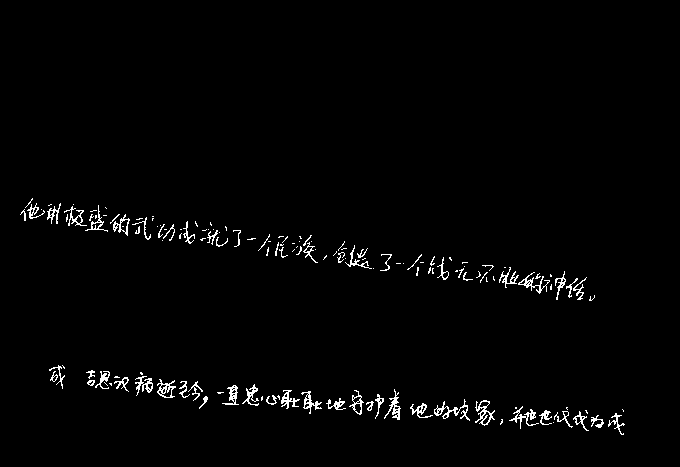 他用极盛的武功成就了一个民族，创造了一个战无不胜的神话。
成 吉思汗病逝至今，一直忠心耿耿地守护着他的坟冢，并世世代代为成